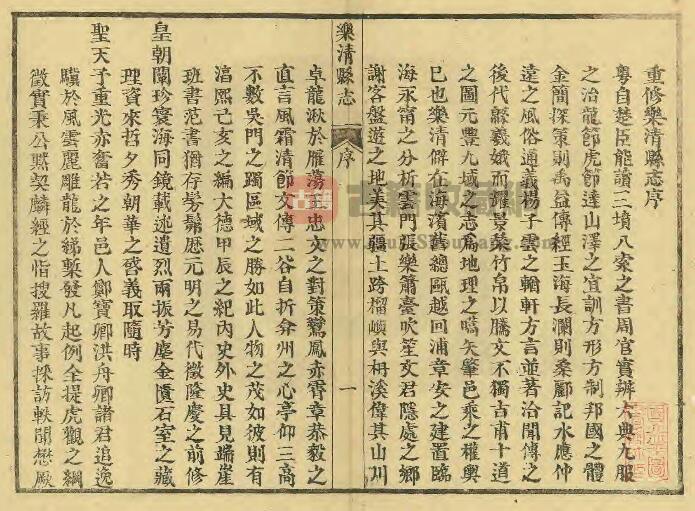 重修樂清縣志序
粵自楚臣能讀三墳八索之書周官實辨六典九服
之治龍節虎節達山澤之宜訓方形方制邦國之體
金簡探策則禹益傳經玉海長瀾則桑酈記水應仲
遠之風俗通義楊子雲之輶軒方言並著洽聞傳之
後代辭羲娥而躍景榮竹帛以騰文不獨吉甫十道
之圖元豐九域之志為地理之嚆矢肇邑乘之權輿
已也樂清僻在海濱舊總甌越回浦章安之建置臨
海永甯之分析雲門張樂簫臺吹笙文君隱處之鄉
謝客盤遊之地美其疆土跨榴嶼與枏溪偉其山川
樂清縣志
序
一
卓龍湫於雁蕩正忠文之對策鸞鳳赤霄章恭毅之
直言風霜清節文傳二谷自折弇州之心亭仰三高
不數吳門之躅區域之勝如此人物之茂如彼則有
淳熙己亥之編大德甲辰之紀內史外史具見端崖
班書范書猶存髣髴歷元明之易代徵隆慶之前修
皇朝闡珍寰海同鏡載述遺烈兩振芳塵金匱石室之藏
理資來哲夕秀朝華之啓義取隨時
聖天子重光赤奮若之年邑人鄭寶卿洪舟卿諸君追逸
驥於風雲麗雕龍於綈槧發凡起例全提虎觀之綱
徵實秉公默契麟經之恉搜羅故事採訪軼聞懋厥